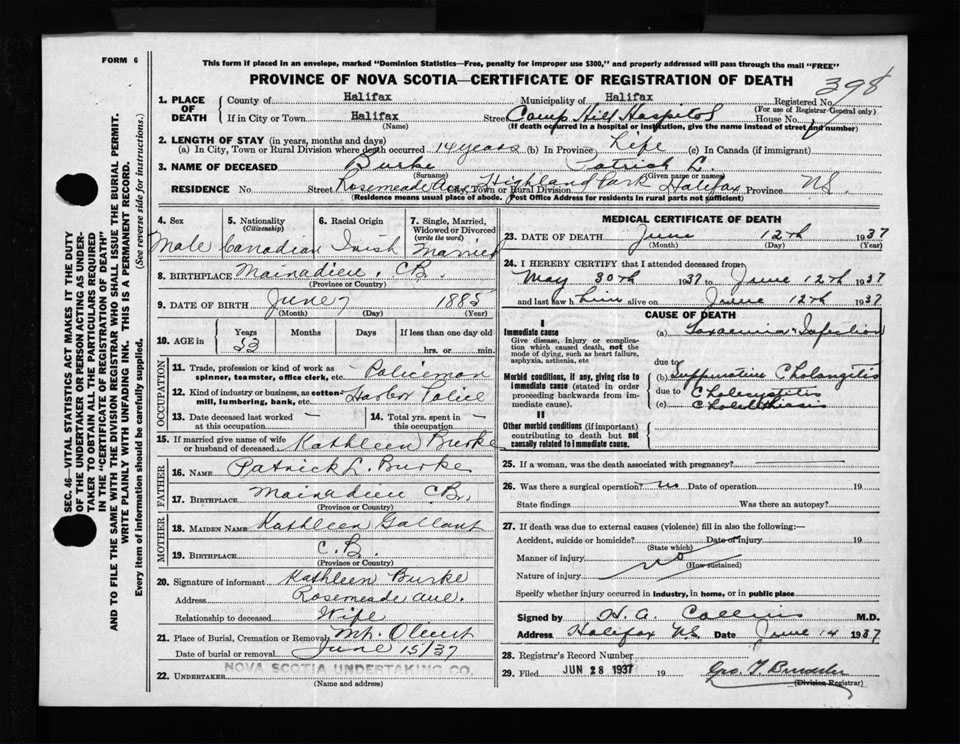 FORM 6
This form if placed in an envelope, marked "Dominion Statistics—Free, penalty for improper use $300," and properly addressed will pass through the mail "FREE"
PROVINCE OF NOVA SCOTIA—CERTIFICATE OF REGISTRATION OF DEATH
398
1. PLACE OF DEATH
County of Halifax Municipality of Halifax Registered No.
(For use of Registrar General only)
If in City or Town Halifax Street Camp Hill Hospital House No.
(Name) (If death occurred in a hospital or institution, give the name instead of street and number)
2. LENGTH OF STAY (in years, months and days)
(a) In City, Town or Rural Division where death occurred 14 years (b) In Province Life (c) In Canada (if immigrant)
3. NAME OF DECEASED Burke Patrick L.
(Surname) (Given name or names)
RESIDENCE No. Street Rosemeade Ave, City, Town or Rural Division Highland Park Halifax Province N.S.
(Residence means usual place of abode. Post Office Address for residents in rural parts not sufficient)
4. Sex Male
5. Nationality (Citizenship) Canadian
6. Racial Origin Irish
7. Single, Married, Widowed or Divorced (write the word) Married
8. BIRTHPLACE Mainadieu, C.B.
(Province or Country)
9. DATE OF BIRTH June 7 1885
(Month) (Day) (Year)
10. AGE in Years 52 Months Days If less than one day old hrs. or min.
OCCUPATION
11. Trade, profession or kind of work as spinner, teamster, office clerk, etc. Policeman
12. Kind of industry or business, as cotton-mill, lumbering, bank, etc. Harbor Police
13. Date deceased last worked at this occupation —
14. Total yrs. spent in this occupation —
15. If married give name of wife or husband of deceased Kathleen Burke
FATHER
16. NAME Patrick L. Burke
17. BIRTHPLACE Mainadieu C.B.
(Province or Country)
MOTHER
18. MAIDEN NAME Kathleen Gallant
19. BIRTHPLACE C.B.
(Province or Country)
20. Signature of informant Kathleen Burke
Address Rosemeade Ave.
Relationship to deceased Wife
21. Place of Burial, Cremation or Removal Mt. Olivet
Date of burial or removal June 15/37
22. UNDERTAKER NOVA SCOTIA UNDERTAKING CO.
(Name and address)
MEDICAL CERTIFICATE OF DEATH
23. DATE OF DEATH June 12th 1937
(Month) (Day) (Year)
24. I HEREBY CERTIFY that I attended deceased from:
May 30th 1937 to June 12th 1937
and last saw him alive on June 12th 1937
CAUSE OF DEATH
I
Immediate cause
Give disease, injury or complication which caused death, not the mode of dying, such as heart failure, asphyxia, asthenia, etc
(a) Toxaemia & Infection
due to
Morbid conditions, if any, giving rise to immediate cause (stated in order proceeding backwards from immediate cause).
(b) Suppurative Cholangitis
due to Cholecystitis
(c) Cholelithiasis
II
Other morbid conditions (if important) contributing to death but not causally related to immediate cause.
25. If a woman, was the death associated with pregnancy?
26. Was there a surgical operation? no Date of operation 19
State findings Was there an autopsy?
27. If death was due to external causes (violence) fill in also the following:—
Accident, suicide or homicide? Date of injury 19
(State which)
Manner of injury no
(How sustained)
Nature of injury
Specify whether injury occurred in industry, in home, or in public place
Signed by H. A. Collins M.D.
Address Halifax N.S. Date June 14 1937
28. Registrar's Record Number
29. Filed JUN 28 1937 19
(Division Registrar)
SEC. 46—VITAL STATISTICS ACT MAKES IT THE DUTY
OF THE UNDERTAKER OR PERSON ACTING AS UNDER-
TAKER TO OBTAIN ALL THE PARTICULARS REQUIRED
IN THE "CERTIFICATE OF REGISTRATION OF DEATH"
AND TO FILE THE SAME WITH THE DIVISION REGISTRAR WHO SHALL ISSUE THE BURIAL PERMIT.
WRITE PLAINLY WITH UNFADING INK. THIS IS A PERMANENT RECORD.
Every item of information should be carefully supplied. (See reverse side for instructions.)